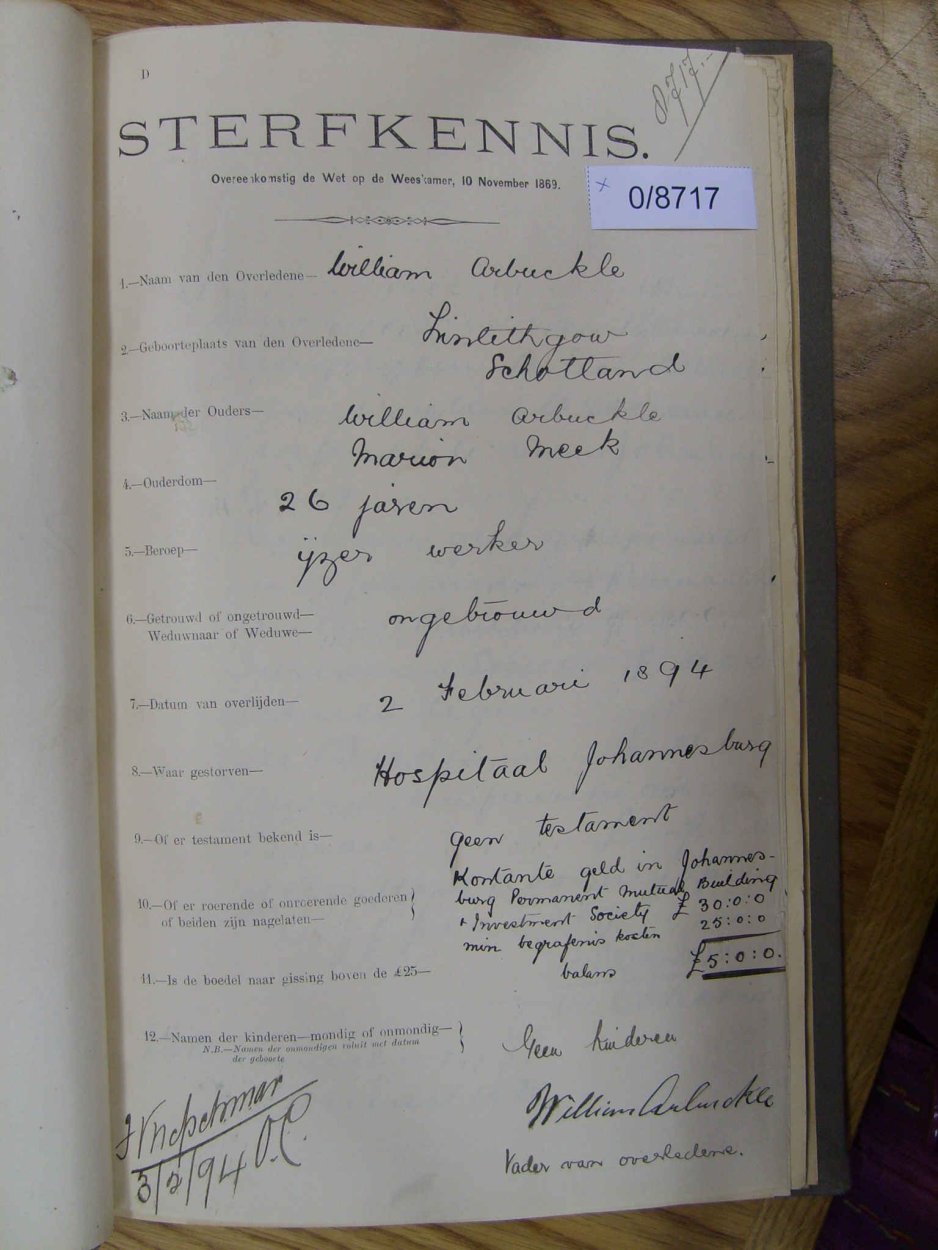 D
8717.-
STERFKENNIS.
Overeenkomstig de Wet op de Weeskamer, 10 November 1869.
x 0/8717
1.—Naam van den Overledene— William Arbuckle
2.—Geboorteplaats van den Overledene— Linlithgow
Schotland
3.—Naam der Ouders— William Arbuckle
Marion Meek
4.—Ouderdom—
26 jaren
5.—Beroep— ijzer werker
6.—Getrouwd of ongetrouwd— ongetrouwd
Weduwnaar of Weduwe—
7.—Datum van overlijden— 2 Februari 1894
8.—Waar gestorven— Hospitaal Johannesburg
9.—Of er testament bekend is— geen testament
Kontante geld in Johannes-
10.—Of er roerende of onroerende goederen } burg Permanent Mutual Building
of beiden zijn nagelaten— + Investment Society £ 30:0:0
min begrafenis kosten 25:0:0
11.—Is de boedel naar gissing boven de £25— balans £5:0:0.
12.—Namen der kinderen—mondig of onmondig— } Geen kinderen
N.B.—Namen der onmondigen voluit met datum
der geboorte
William Arbuckle
Vader van overledene.
3/2/94